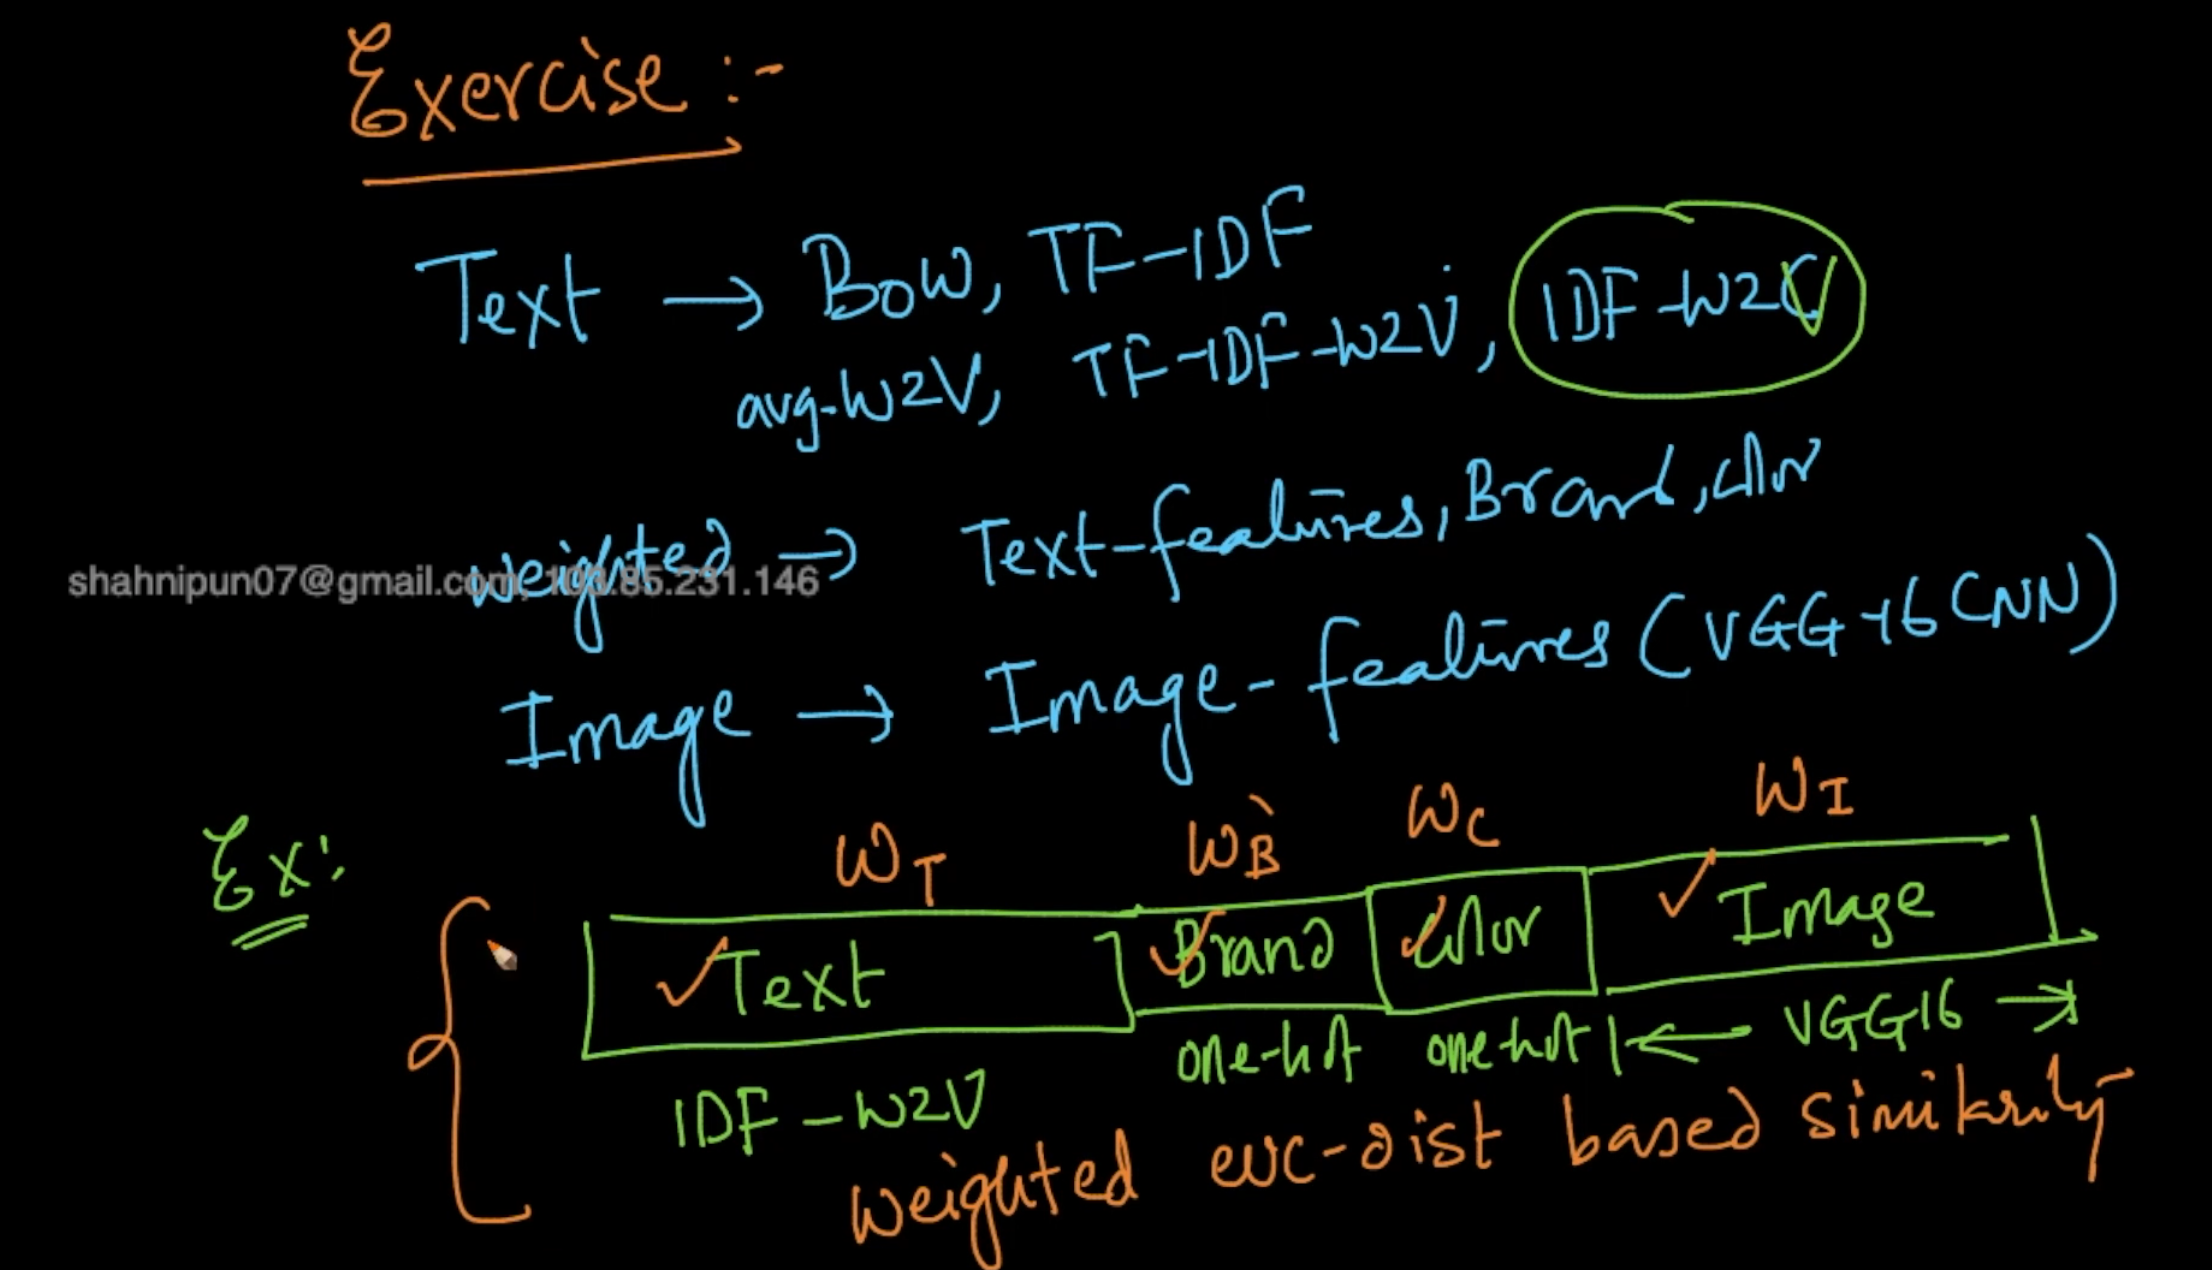 Exercise :-
Text → BOW, TF-IDF
avg-W2V, TF-IDF-W2V, IDF-W2V
weighted → Text-features, Brand, color
shahnipun07@gmail.com,
Image → Image-features (VGG-16 CNN)
Ex:
WT WB WC WI
Text Brand Color Image
IDF-W2V one-hot one-hot ← VGG16 →
weighted euc-dist based similarity